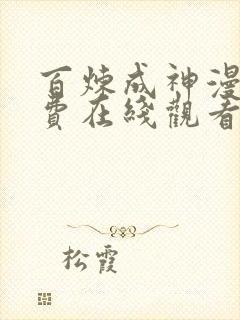 百煉成神漫
費在綫觀看
松霞